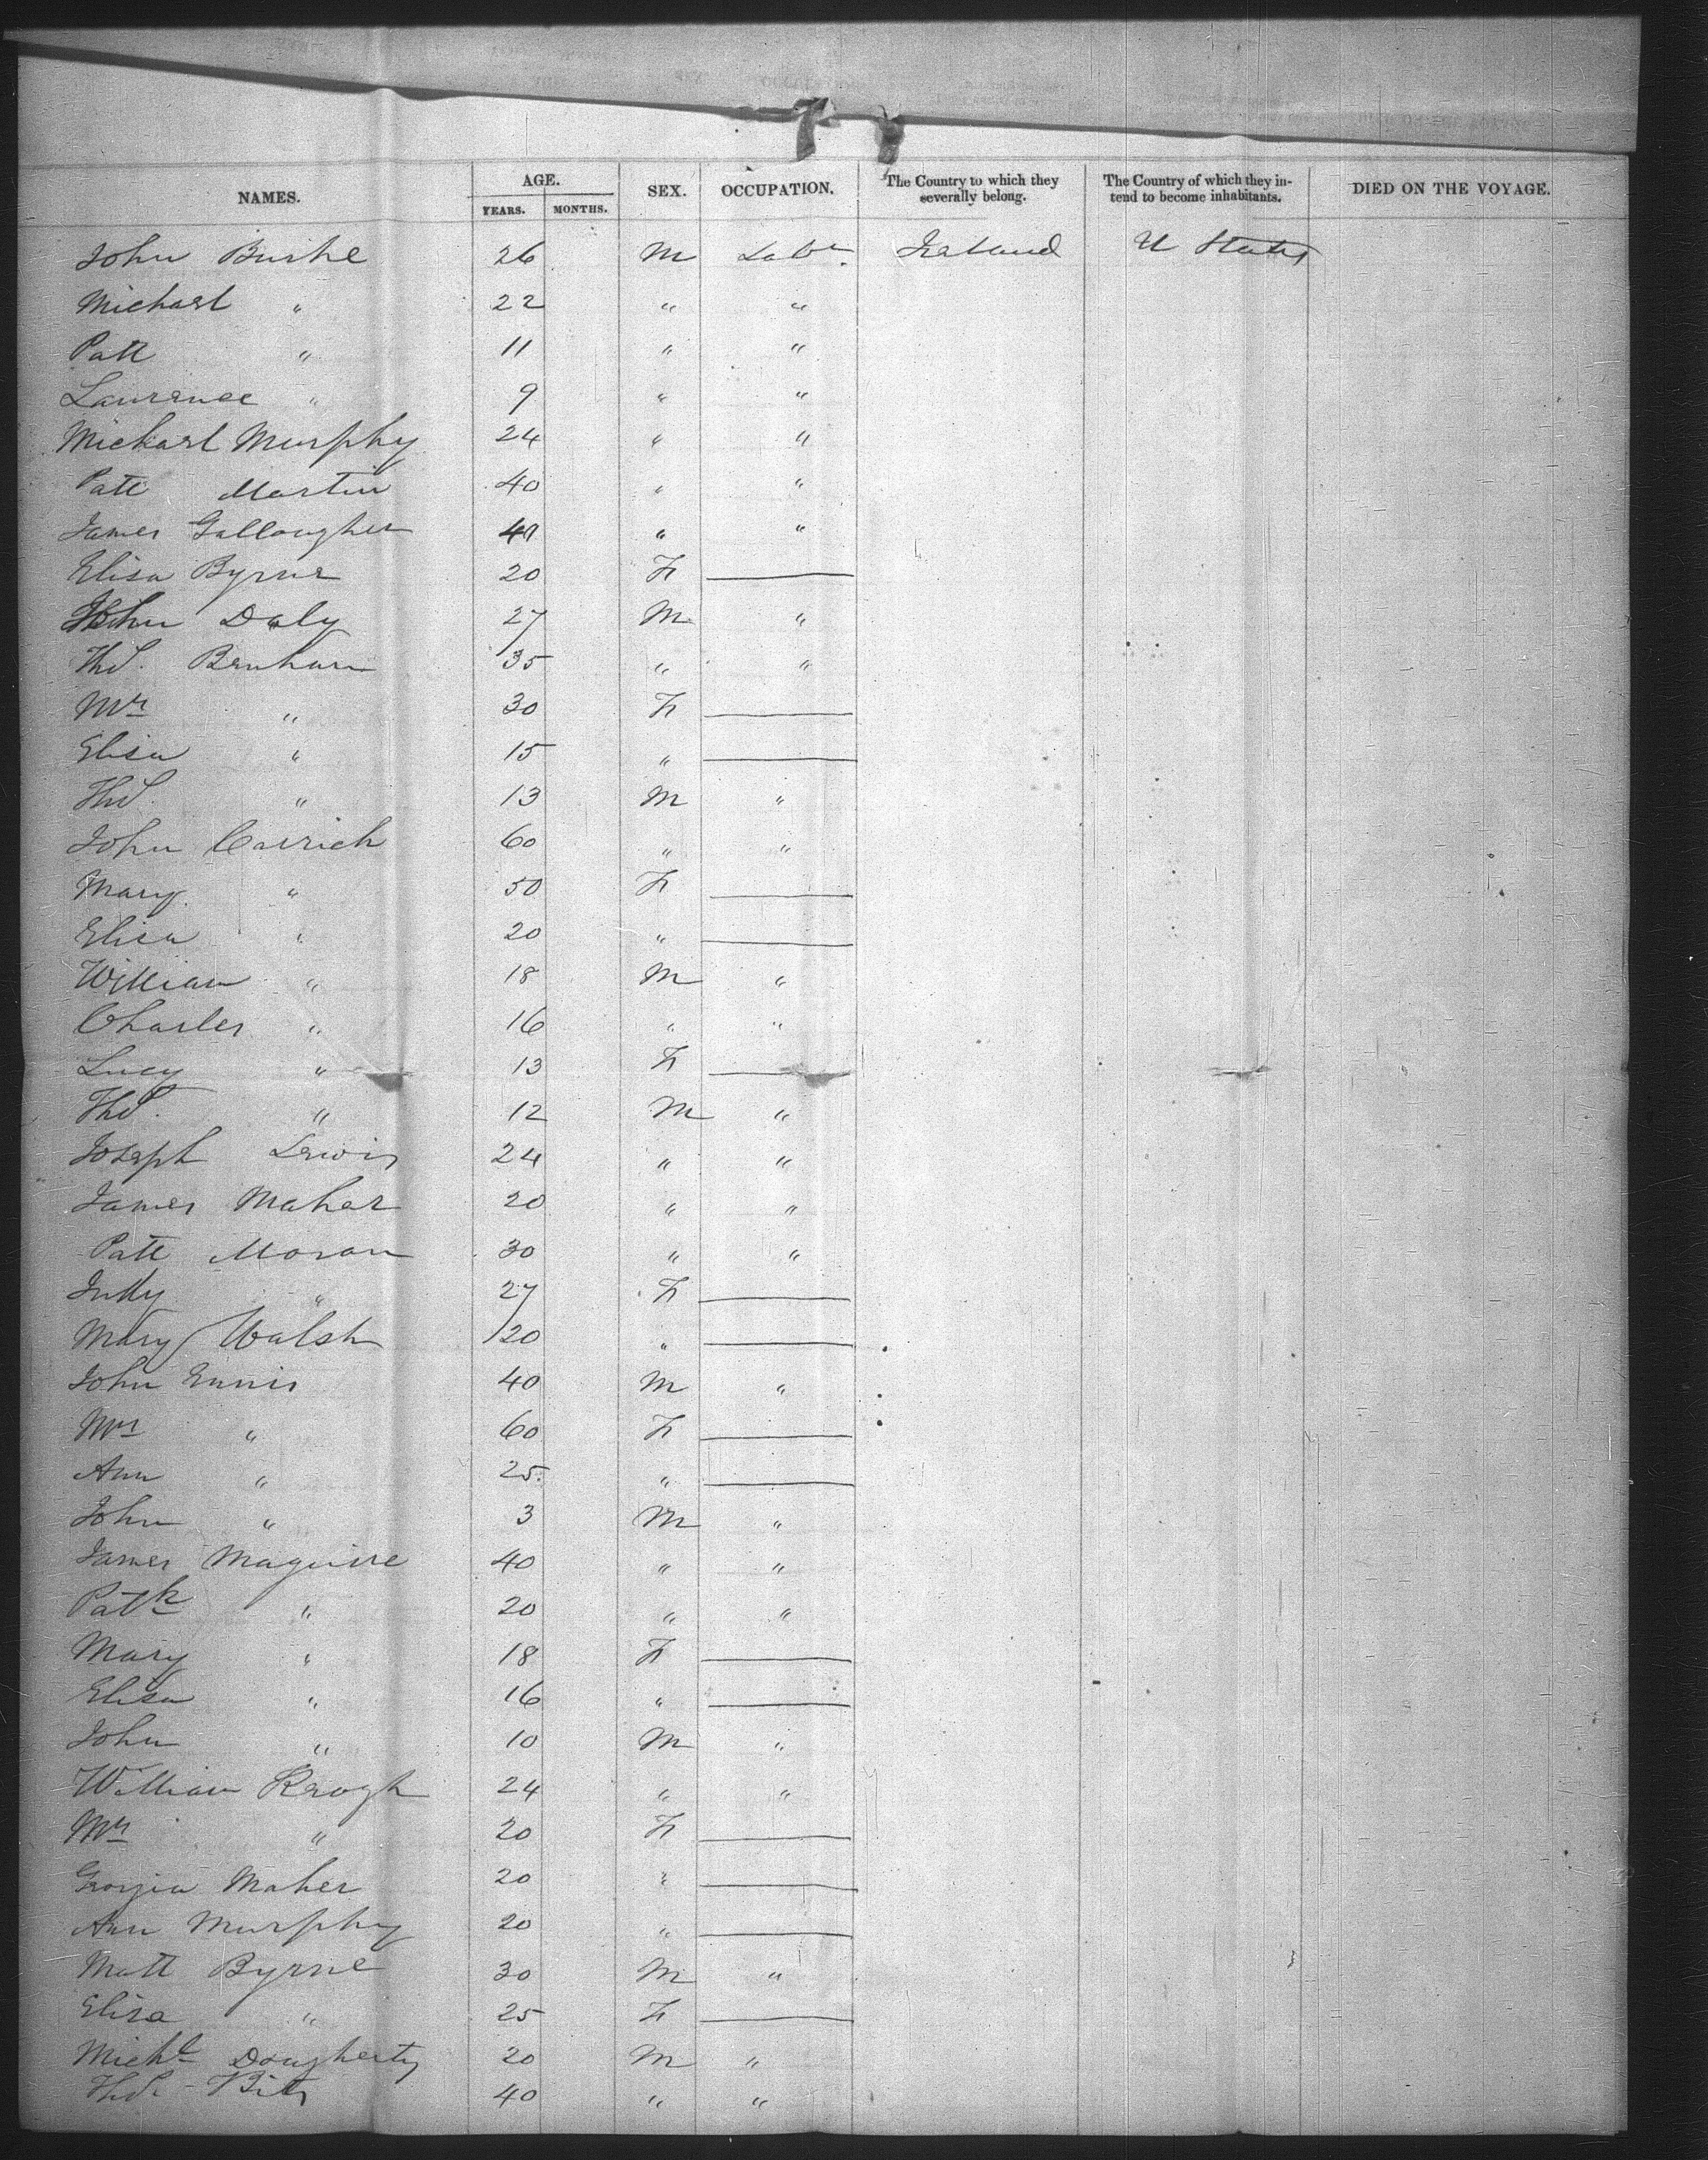 NAMES. AGE. SEX. OCCUPATION. The Country to which they severally belong. The Country of which they intend to become inhabitants. DIED ON THE VOYAGE.
YEARS. MONTHS.
John Burke 26 M Labr. Ireland U States
Michael " 22 " "
Patt " 11 " "
Laurence " 9 " "
Michael Murphy 24 " "
Patt Martin 40 " "
James Gallougher 40 " "
Elisa Byrne 20 F —
John Daly 27 M "
Thos. Benham 35 " "
Mrs " 30 F —
Elisa " 15 " —
Thos. " 13 M "
John Carrich 60 " "
Mary " 50 F —
Elisa " 20 " —
William " 18 M "
Charles " 16 " "
Lucy " 13 F —
Thos. " 12 M "
Joseph Lewis 24 " "
James Maher 20 " "
Patt Moran 30 " "
Judy " 27 F —
Mary Walsh 20 " —
John Ennis 40 M "
Mrs " 60 F —
Ann " 25 " —
John " 3 M "
James Maguire 40 " "
Patk " 20 " "
Mary " 18 F —
Elisa " 16 " —
John " 10 M "
William Keogh 24 " "
Mrs " 20 F —
Georgia Maher 20 " —
Ann Murphy 20 " —
Matt Byrne 30 M "
Elisa " 25 F —
Michl Dougherty 20 M "
Thos. 40 " "